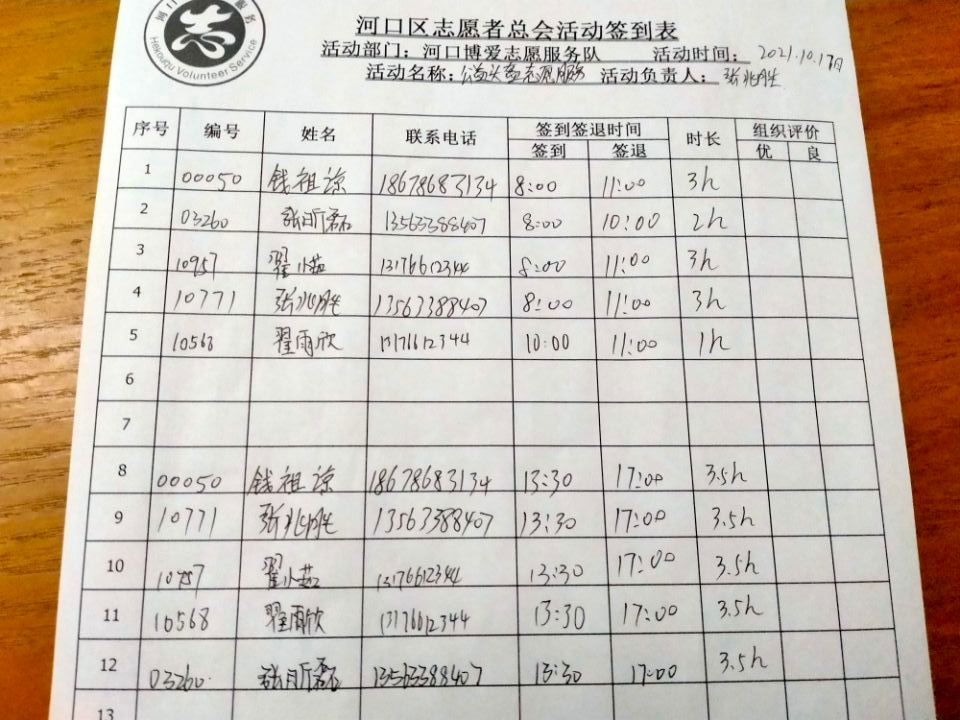 Hekouqu Volunteer Service
河口区志愿者总会活动签到表
活动部门：河口博爱志愿服务队 活动时间：2021.10.17日
活动名称：公益头盔志愿服务 活动负责人：张兆胜
序号 编号 姓名 联系电话 签到签退时间 时长 组织评价
签到 签退 优 良
1 00050 钱祖谅 18678683134 8:00 11:00 3h
2 03260 张昕磊 13563388407 8:00 10:00 2h
3 10957 翟小茹 13176612344 8:00 11:00 3h
4 10771 张兆胜 13563388407 8:00 11:00 3h
5 10568 翟雨欣 13176612344 10:00 11:00 1h
6
7
8 00050 钱祖谅 18678683134 13:30 17:00 3.5h
9 10771 张兆胜 13563388407 13:30 17:00 3.5h
10 翟小茹 13176612344 13:30 17:00 3.5h
11 10568 翟雨欣 13176612344 13:30 17:00 3.5h
12 03260 张昕磊 13563388407 13:30 17:00 3.5h
13